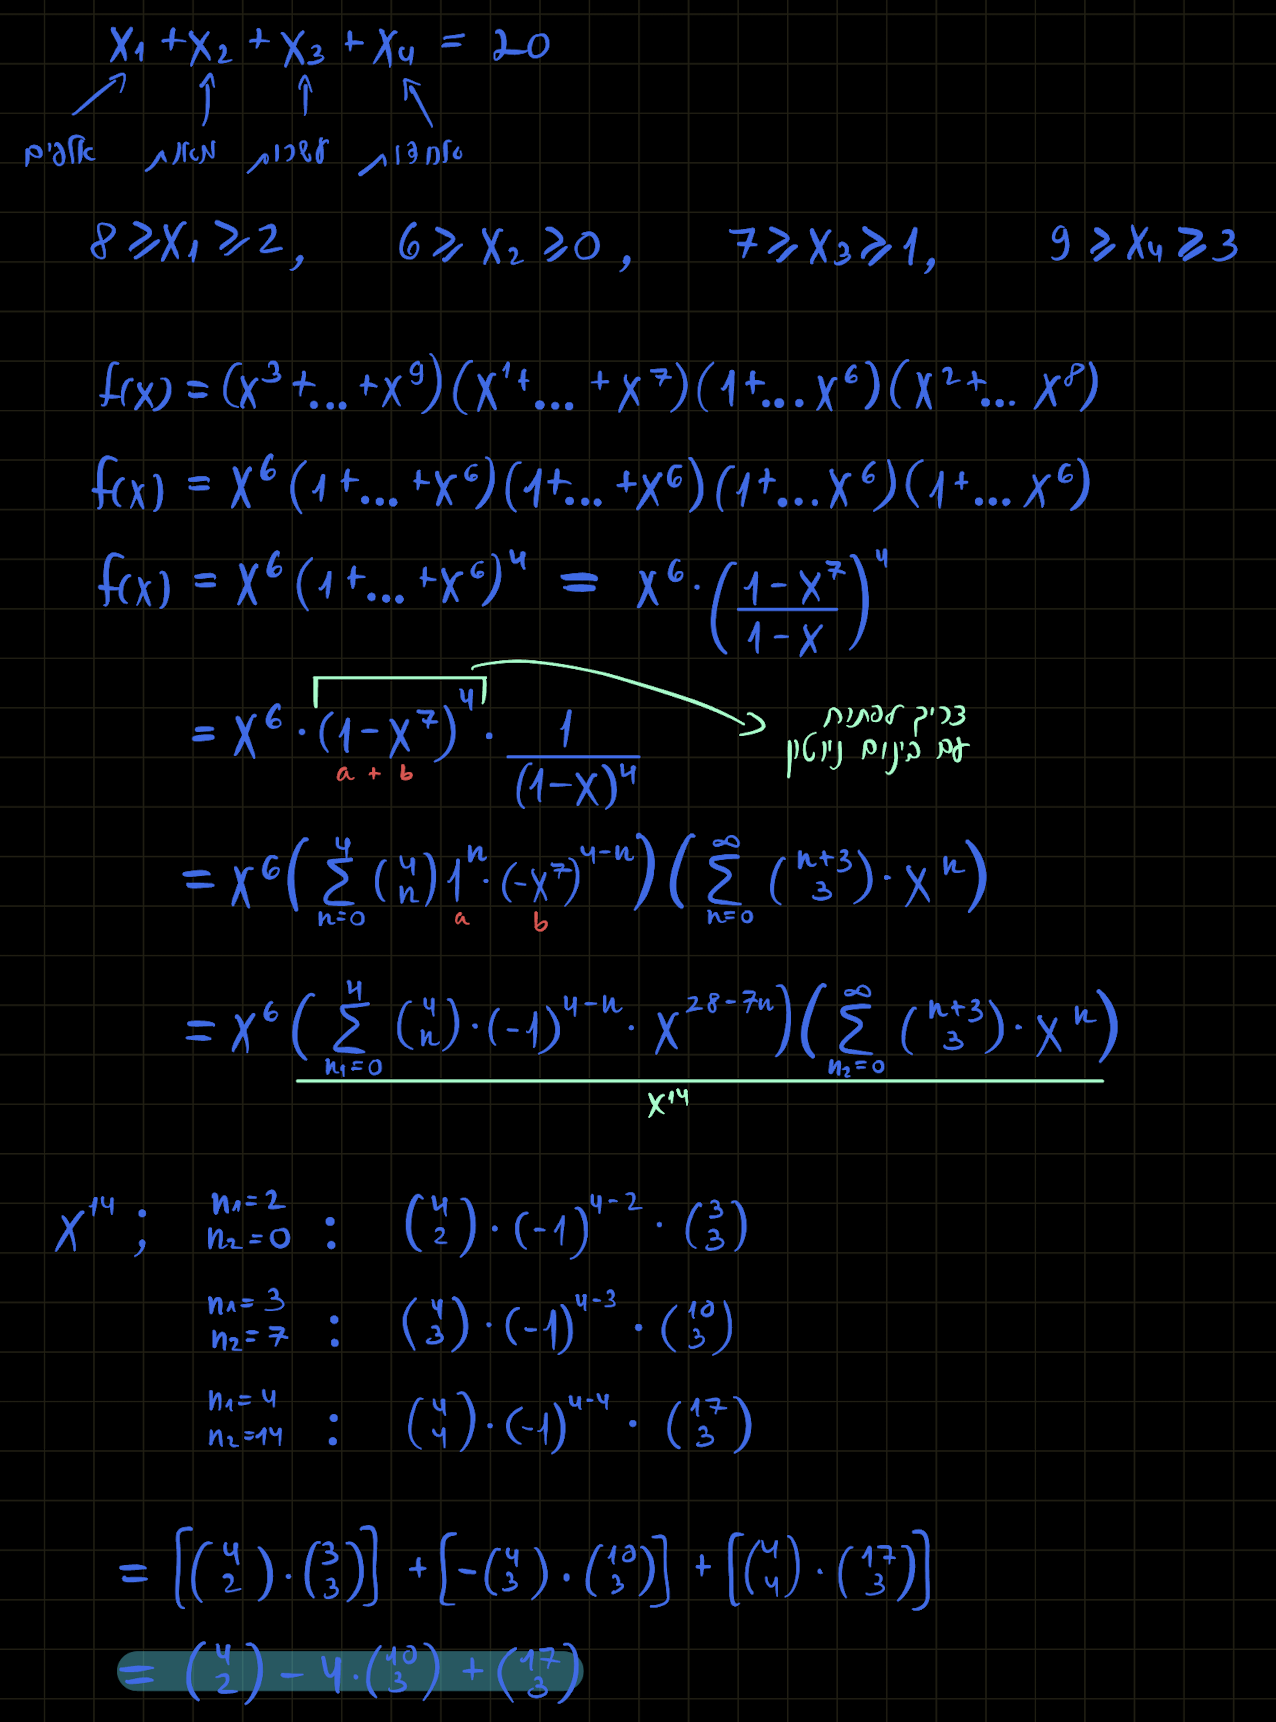 x₁ + x₂ + x₃ + x₄ = 20
אלפים מאות עשרות אחדות
8 ⩾ x₁ ⩾ 2, 6 ⩾ x₂ ⩾ 0, 7 ⩾ x₃ ⩾ 1, 9 ⩾ x₄ ⩾ 3
f(x) = (x³ + ... + x⁹)(x¹ + ... + x⁷)(1 + ... x⁶)(x² + ... x⁸)
f(x) = x⁶(1 + ... + x⁶)(1 + ... + x⁶)(1 + ... x⁶)(1 + ... x⁶)
f(x) = x⁶(1 + ... + x⁶)⁴ = x⁶ · ((1 - x⁷)/(1 - x))⁴
= x⁶ · (1 - x⁷)⁴ · 1/(1 - x)⁴
a + b
צריך לפתוח
עם בינום ניוטון
= x⁶ (∑_{n=0}^{4} (4 n) 1ⁿ · (-x⁷)^{4-n}) (∑_{n=0}^{∞} (n+3 3) · xⁿ)
a b
= x⁶ (∑_{n₁=0}^{4} (4 n) · (-1)^{4-n} · x^{28-7n}) (∑_{n₂=0}^{∞} (n+3 3) · xⁿ)
x¹⁴
x¹⁴ ; n₁=2 n₂=0 : (4 2) · (-1)^{4-2} · (3 3)
n₁=3 n₂=7 : (4 3) · (-1)^{4-3} · (10 3)
n₁=4 n₂=14 : (4 4) · (-1)^{4-4} · (17 3)
= [(4 2) · (3 3)] + [-(4 3) · (10 3)] + [(4 4) · (17 3)]
= (4 2) - 4 · (10 3) + (17 3)